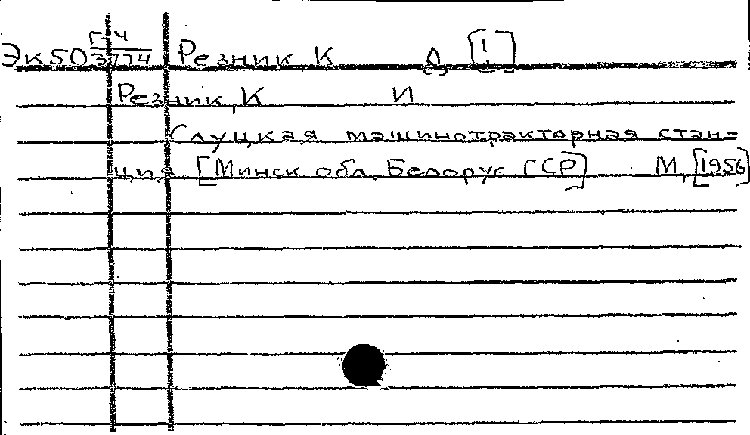 Эк50 Г-4/3774 Резник К Д [1]
Резник, К И
Слуцкая машинотракторная стан-
ция [Минск обл. Белорус ССР] М, [1956]